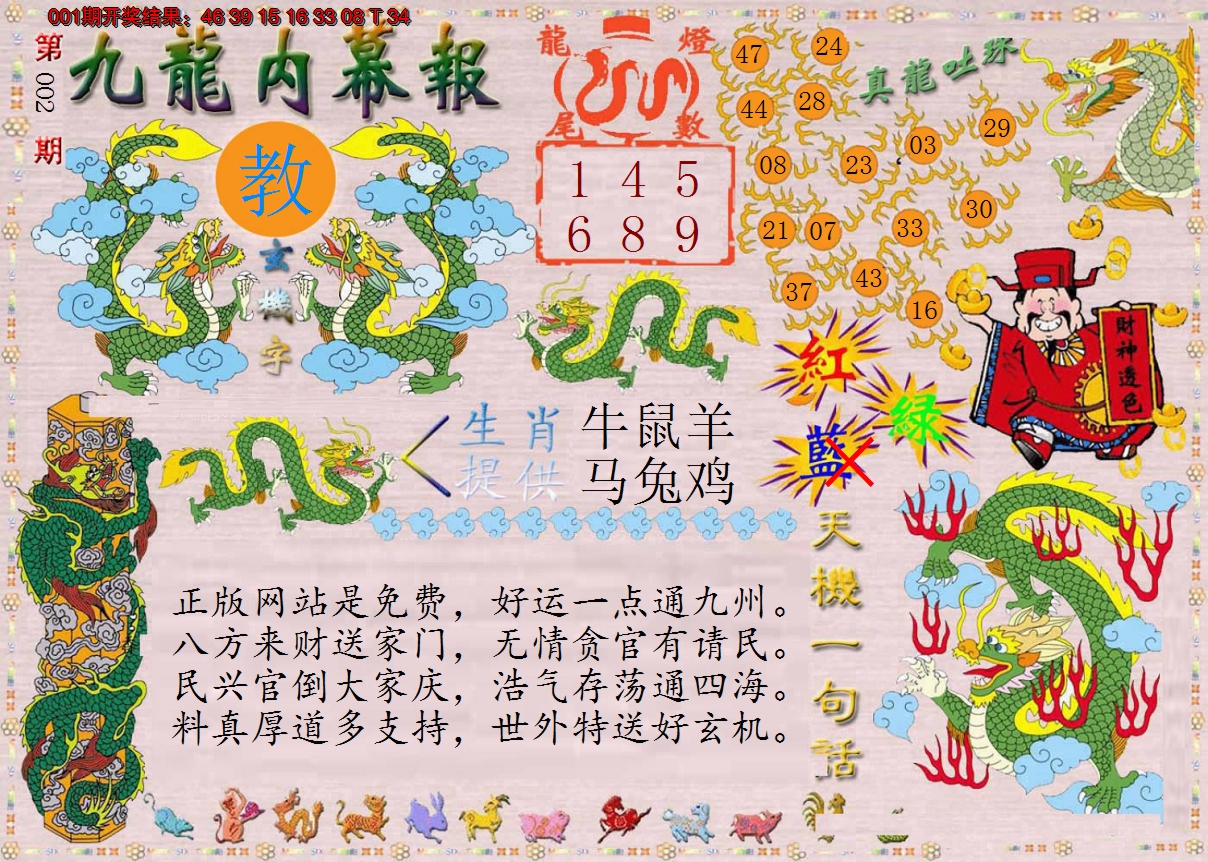 001期开奖结果：46 39 15 16 33 08 T 34
第
002
期
九龍内幕報
教
玄
機
字
龍 燈
尾 數
1 4 5
6 8 9
真龍吐珠
47 24
44 28
08 23 03 29
21 07 33 30
37 43 16
紅
綠
藍
財神透色
生肖
提供
牛鼠羊
马兔鸡
天機一句话
正版网站是免费，好运一点通九州。
八方来财送家门，无情贪官有请民。
民兴官倒大家庆，浩气存荡通四海。
料真厚道多支持，世外特送好玄机。